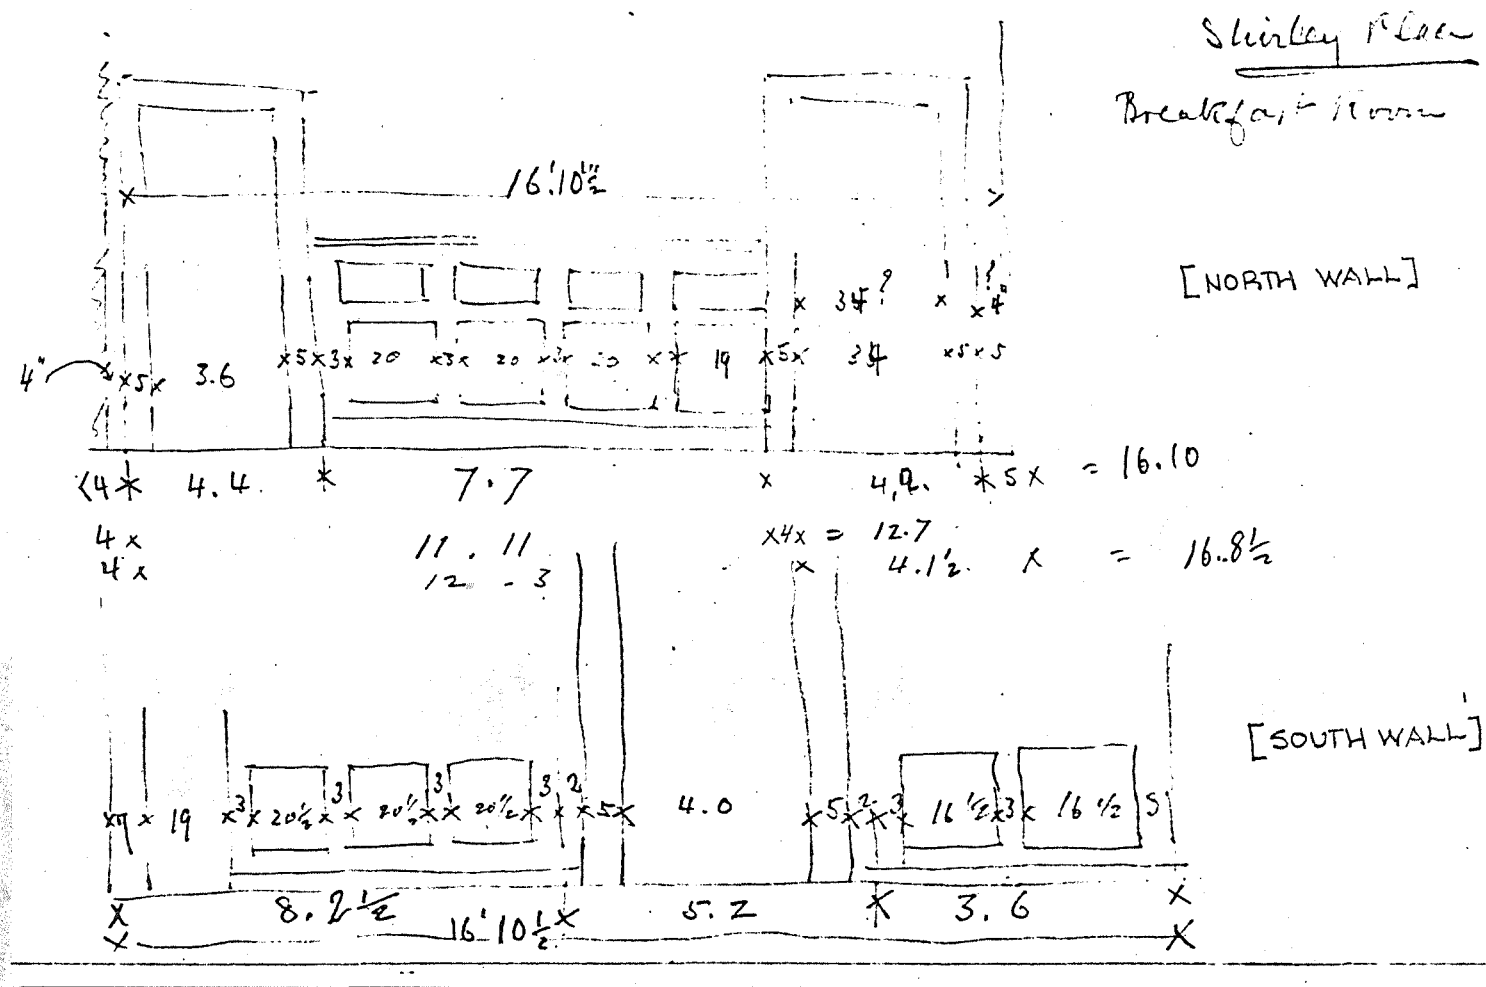 Shirley Place
Breakfast Room
16'.10 1/2"
[NORTH WALL]
34? x ? x 4"
4" x 5 x 3.6 x 5 x 3 x 20 x 3 x 20 x 3 x 20 x x 19 x 5 x 34 x 5 x 5
<4 x 4.4. x 7.7 x 4,2. x 5 x = 16.10
4 x 11.11 x 4 x = 12.7
4 x 12 - 3 x 4.1 1/2. x = 16.8 1/2
[SOUTH WALL]
x 7 x 19 x 3 x 20 1/2 x 3 x 20 1/2 x 3 x 20 1/2 x 3 x 2 x 5 x 4.0 x 5 x 2 x 3 x 16 1/2 x 3 x 16 1/2 5
x 8.2 1/2 x 5.2 x 3.6 x
x 16' 10 1/2 x